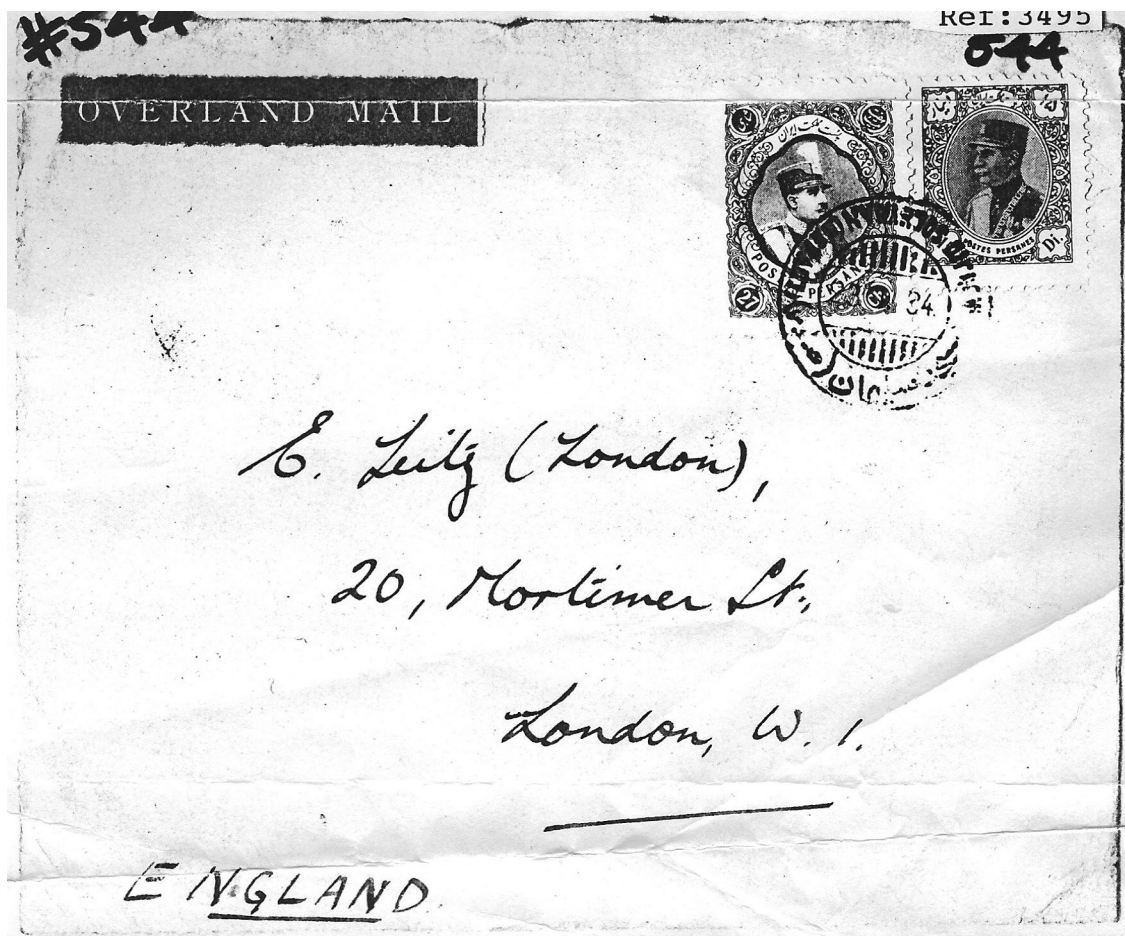 #544
Ref:3495
544
OVERLAND MAIL
POSTES PERSANES
Di.
27
34
E. Leitz (London),
20, Mortimer St.,
London, W. 1.
ENGLAND.